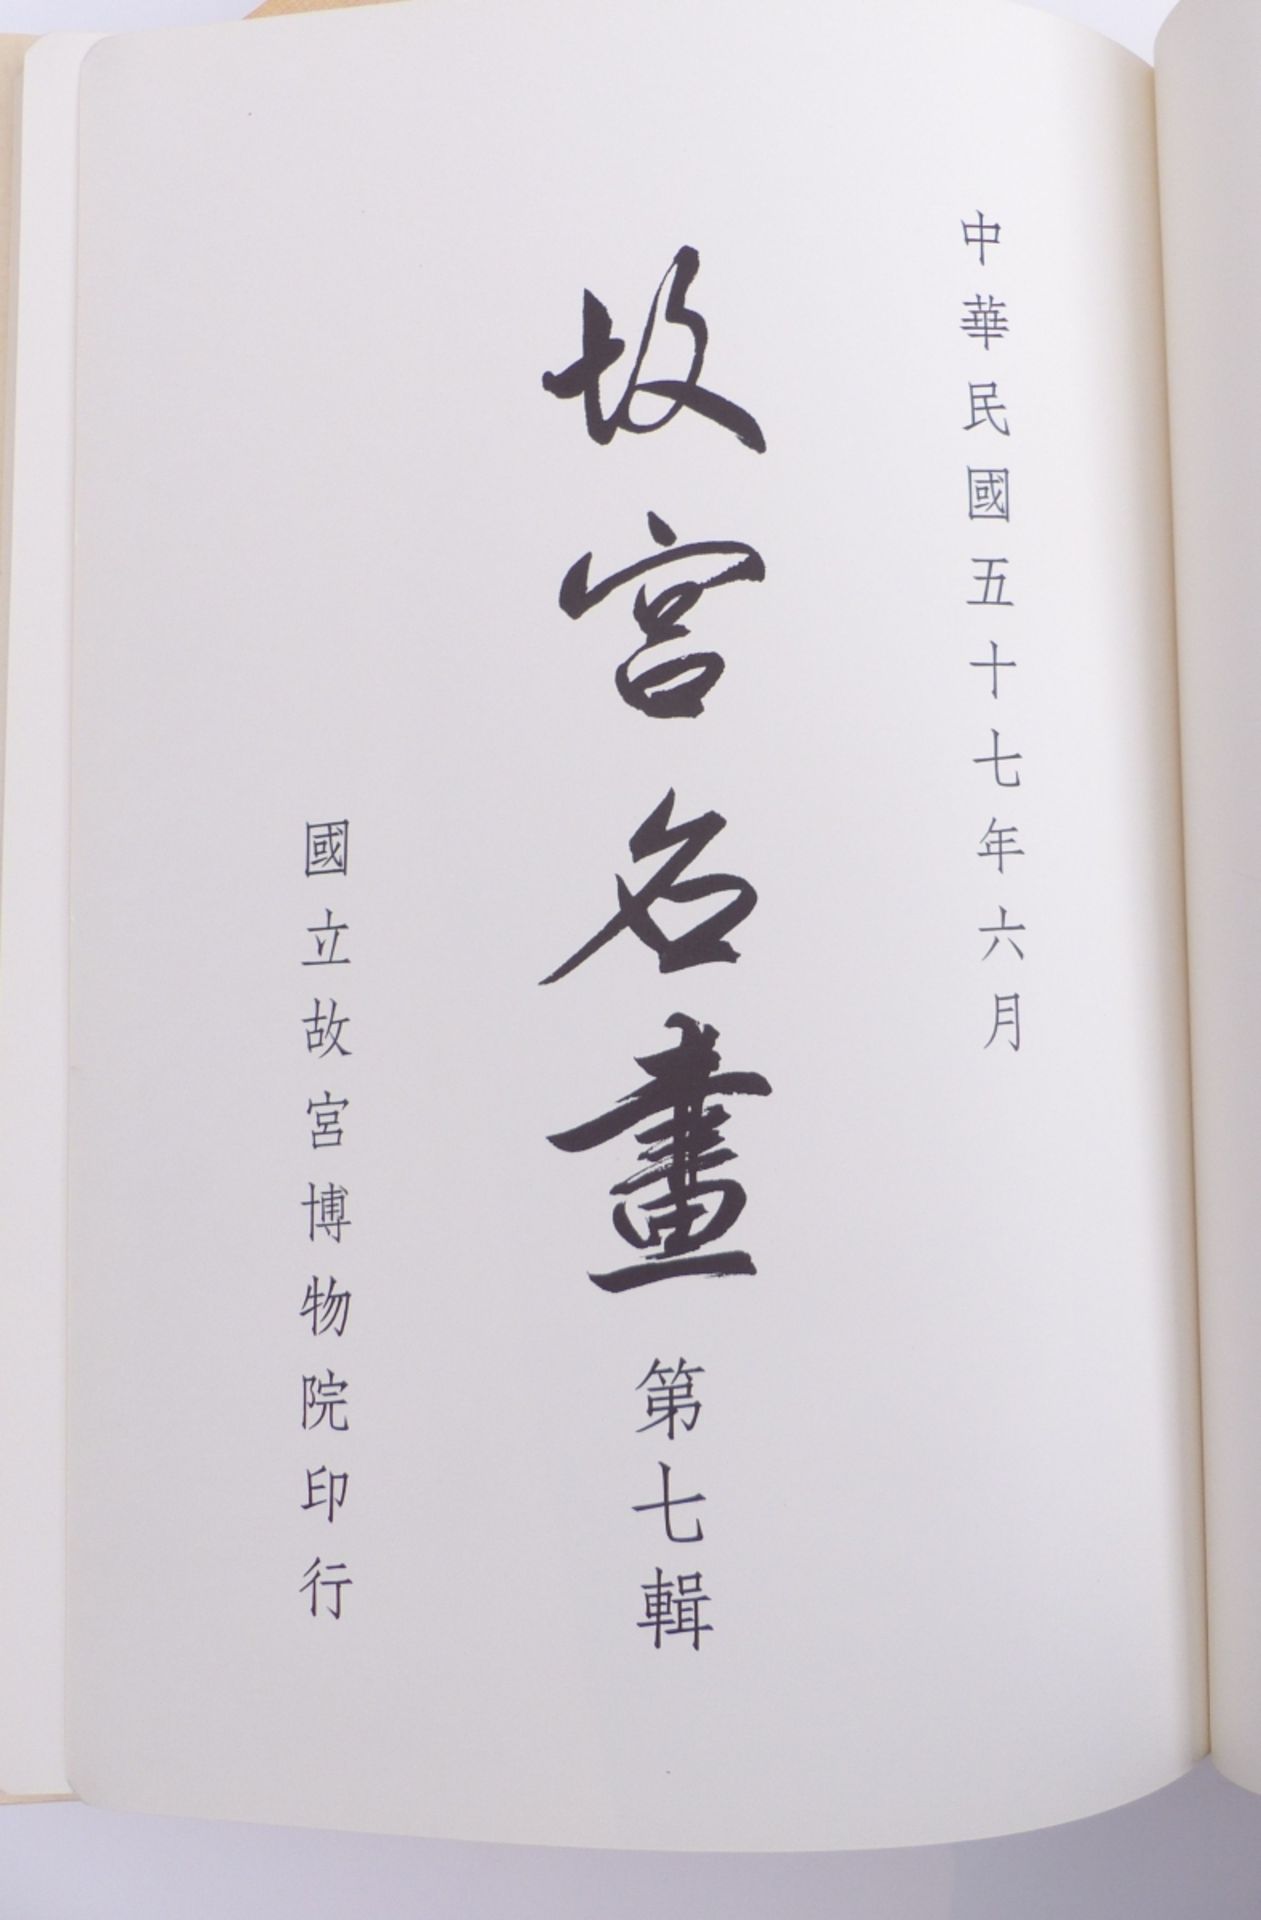 中華民國五十七年六月
故宮名畫 第七輯
國立故宮博物院印行